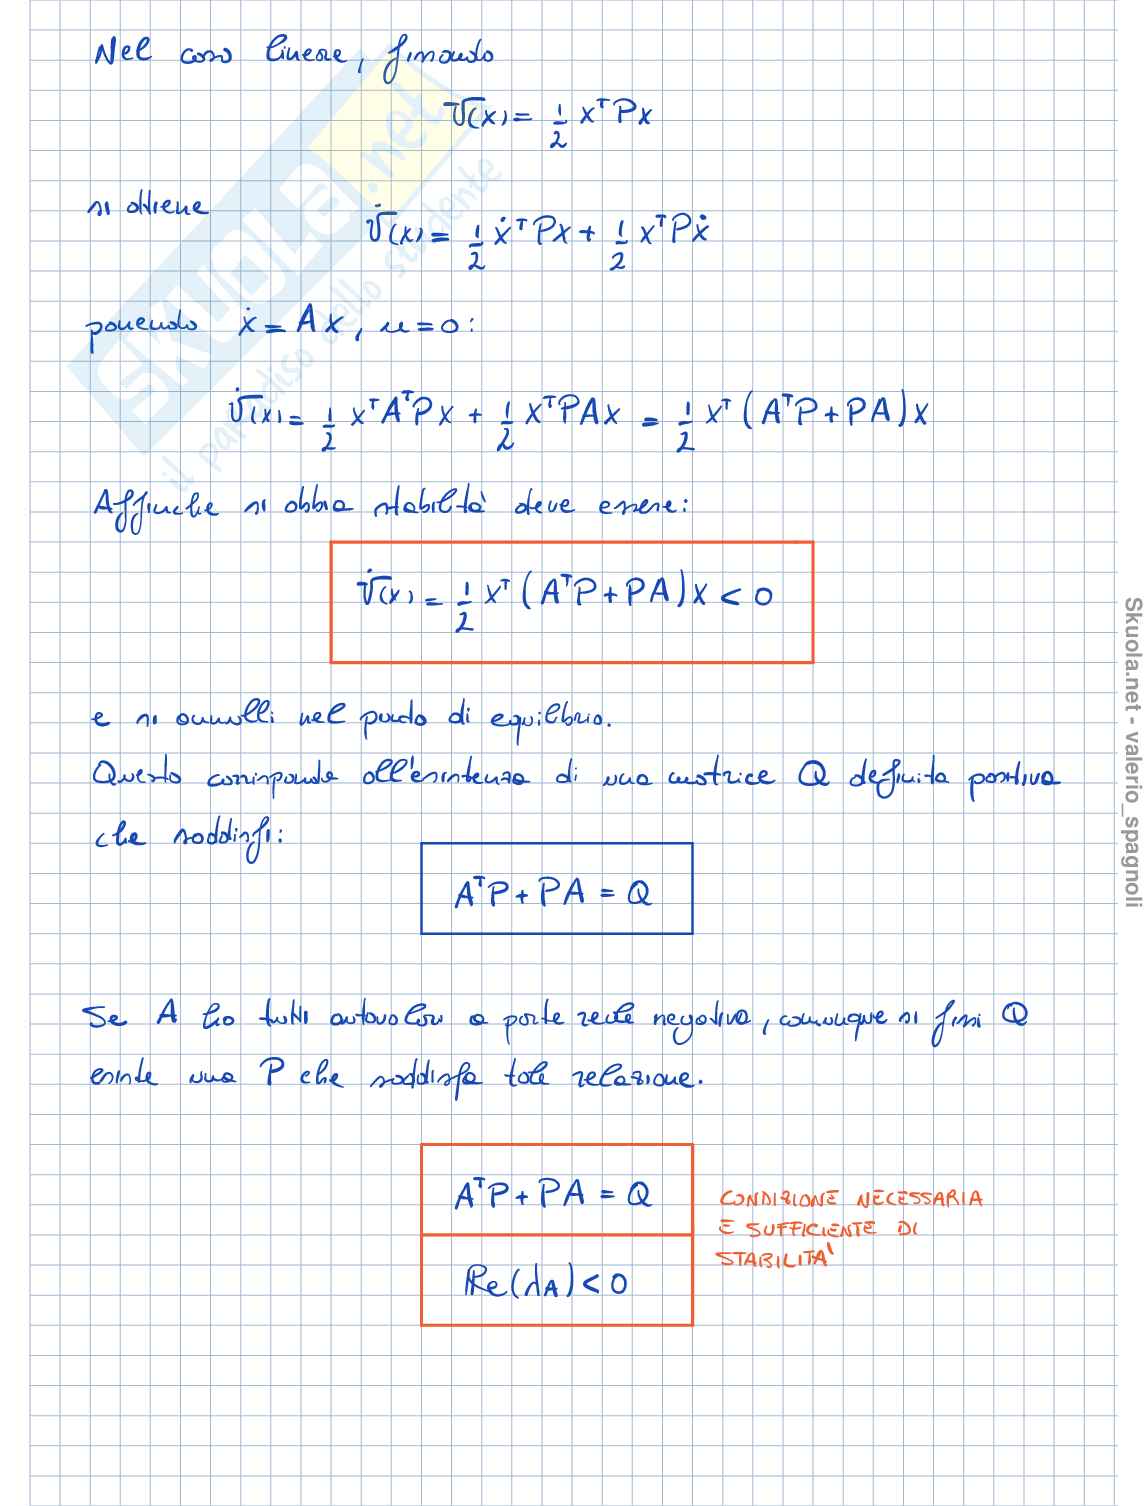 Nel caso lineare, fissando
V(x) = 1/2 xᵀPx
si ottiene
V̇(x) = 1/2 ẋᵀPx + 1/2 xᵀPẋ
ponendo ẋ = Ax, u = 0:
V̇(x) = 1/2 xᵀAᵀPx + 1/2 xᵀPAx = 1/2 xᵀ(AᵀP + PA)x
Affinche si abbia stabilità deve essere:
V̇(x) = 1/2 xᵀ(AᵀP + PA)x < 0
e si annulli nel punto di equilibrio.
Questo corrisponde all'esistenza di una matrice Q definita positiva
che soddisfi:
AᵀP + PA = Q
Se A ha tutti autovalori a parte reale negativa, comunque si fissi Q
esiste una P che soddisfa tale relazione.
AᵀP + PA = Q
CONDIZIONE NECESSARIA
E SUFFICIENTE DI
STABILITA'
Re(λA) < 0
SKUOLA.net
il paradiso dello studente
Skuola.net - valerio_spagnoli